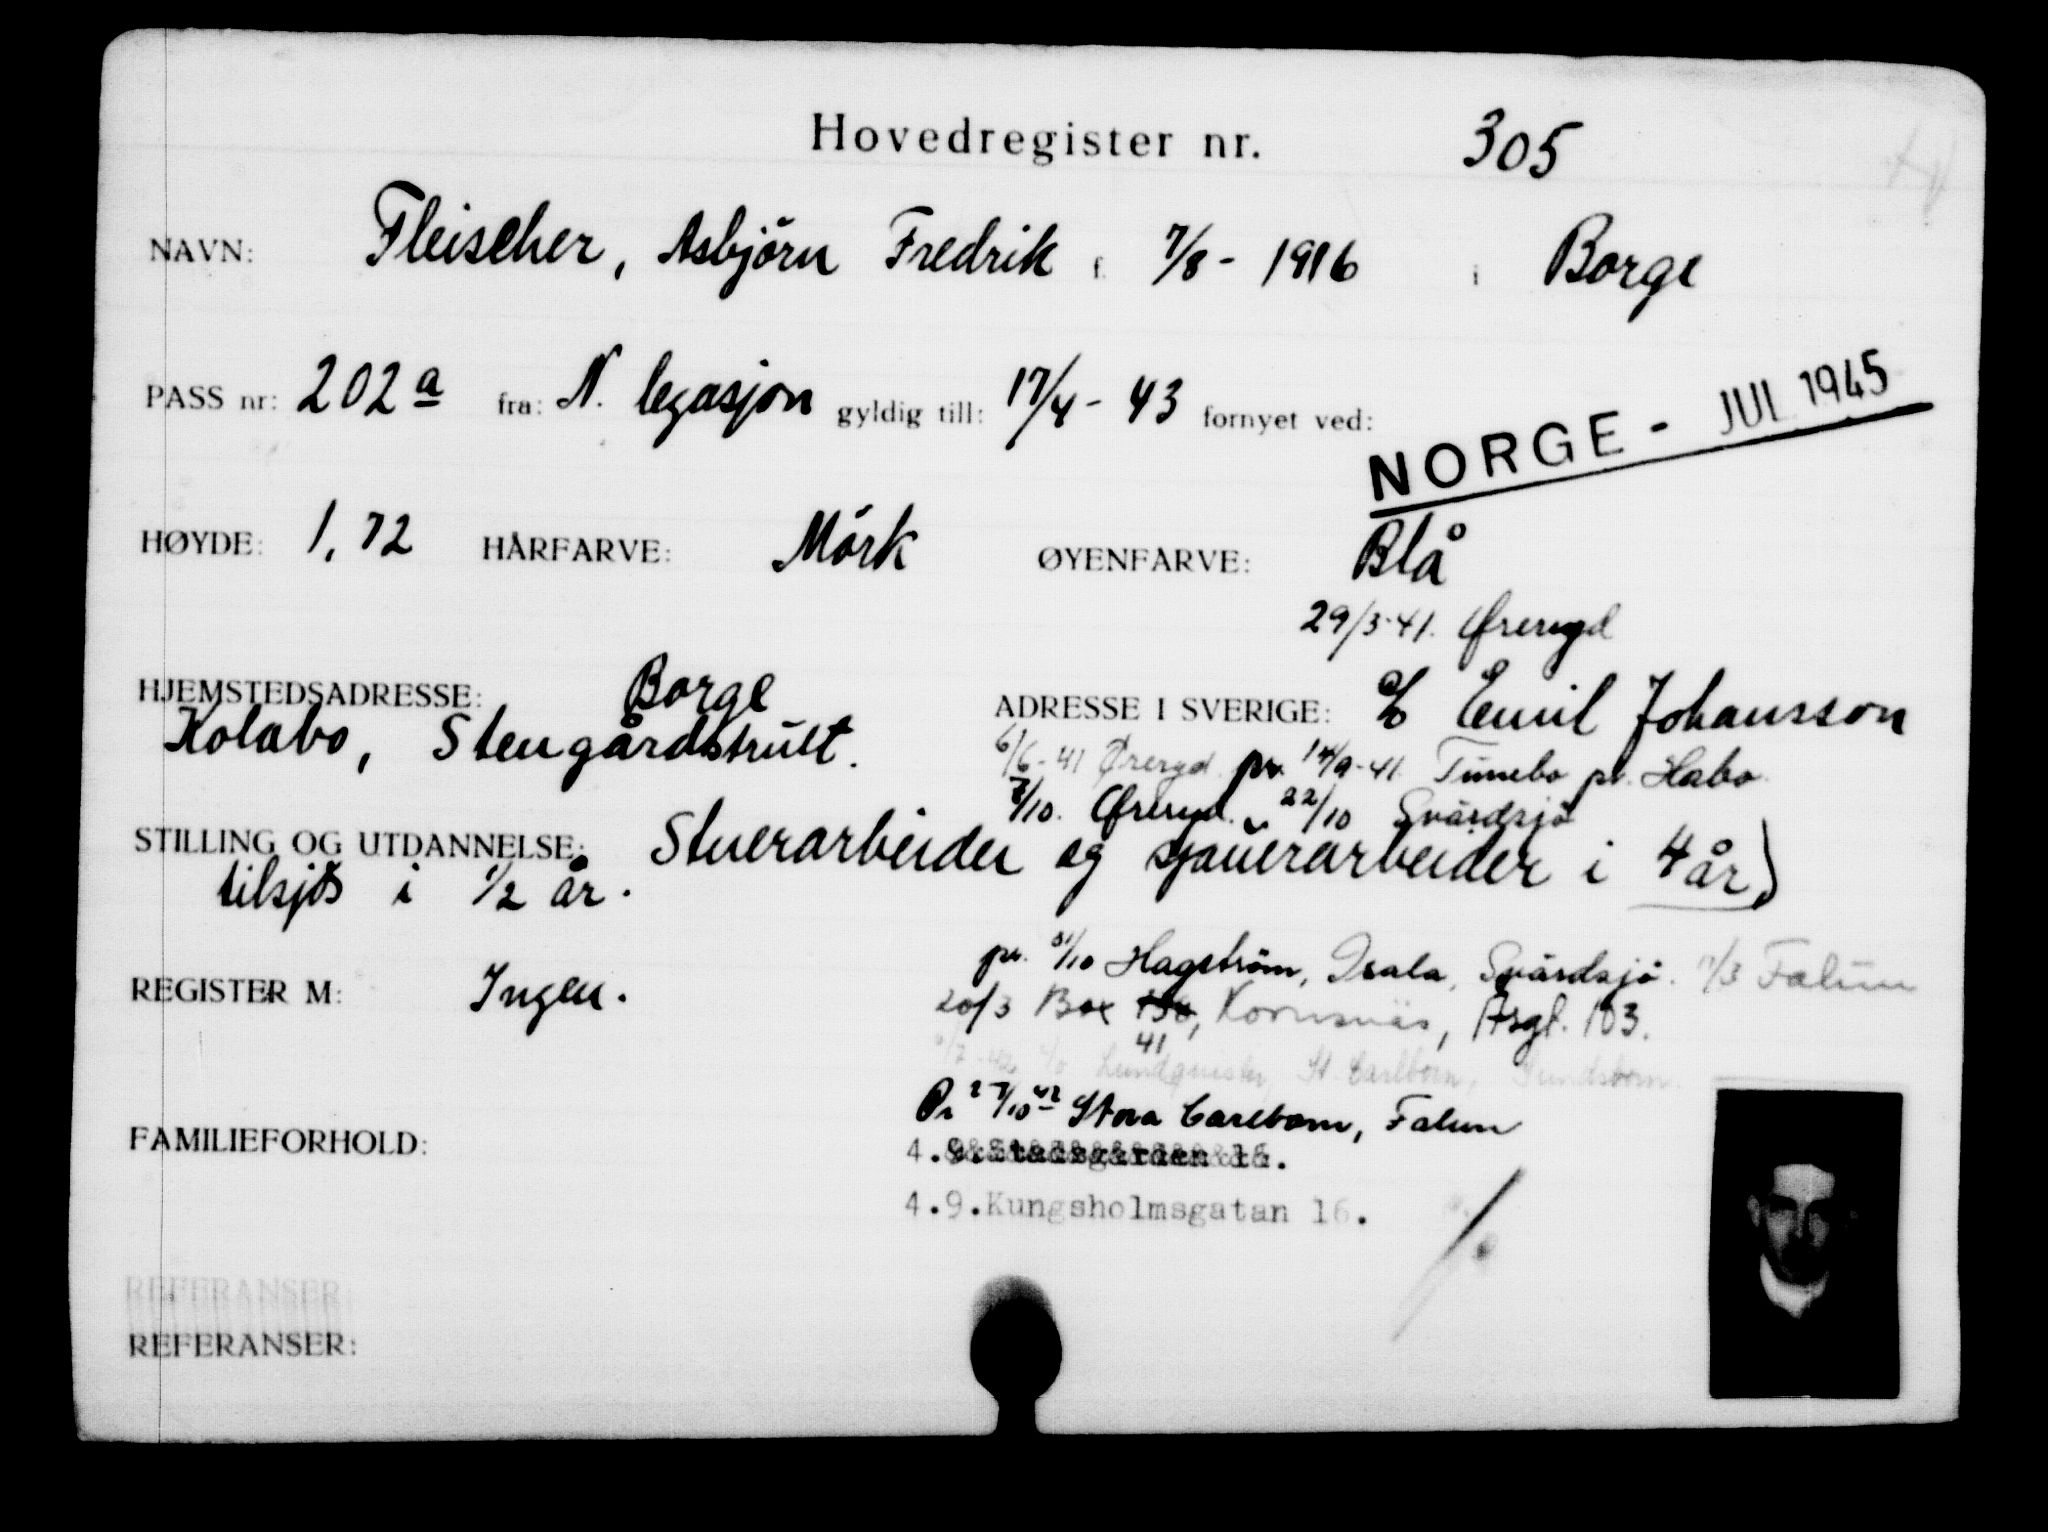 Hovedregister nr. 305
NAVN: Fleischer, Asbjörn Fredrik f. 7/8 - 1916 i Borge
PASS nr: 202a fra: N. legasjon gyldig till: 17/4 - 43 fornyet ved:
NORGE - JUL 1945
HØYDE: 1,72 HÅRFARVE: Mörk ØYENFARVE: Blå
29/3-41. Øreryd
HJEMSTEDSADRESSE: Borge
Kolabo, Stengårdstrult.
ADRESSE I SVERIGE: c/o Emil Johansson
6/6-41 Øreryd pr. 14/9-41. Tunebo pr. Habo
7/10. Øreryd. 22/10 Svärdsjö
STILLING OG UTDANNELSE: Stuerarbeider og sjauerarbeider i 4 år)
tilsjös i 1/2 år.
pr. 31/10 Hagström, Isala, Svärdsjö. 17/3 Falun
REGISTER M: Ingen.
20/3 Box 138, Kornsnäs, Åsgt. 103.
41
c/o Lundquister, St. Carlbom, Sundsborn
Pr 27/10 42 Stora Carlbom, Falun
FAMILIEFORHOLD:
4.9.Stadsgården 16.
4.9.Kungsholmsgatan 16.
REFERANSER
REFERANSER: